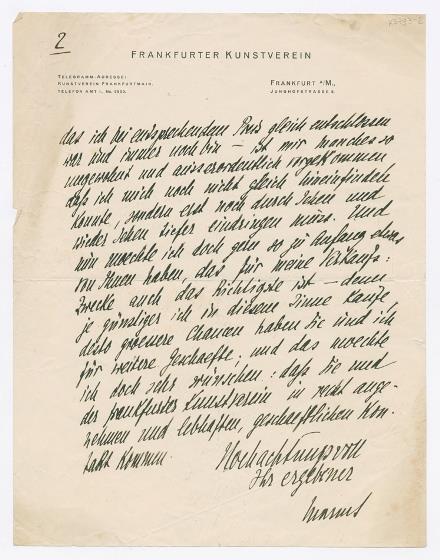 2
FRANKFURTER KUNSTVEREIN
TELEGRAMM-ADRESSE:
KUNSTVEREIN FRANKFURTMAIN.
TELEFON AMT I, No.
FRANKFURT A/M.,
JUNGHOFSTRASSE 8.
das ich bei entsprechendem Preis gleich entschlossen
war und immer noch bin – ist mir manches so
ungewohnt und ausserordentlich vorgekommen
daß ich mich noch nicht gleich hineinfinden
konnte, sondern erst noch durch Sehen und
wieder Sehen tiefer eindringen muss. Und
nun moechte ich doch gern so zu Anfang etwas
von Ihnen haben, das für meine Verkaufs:
Zwecke auch das Richtigste ist – denn
je günstiger ich in diesem Sinne kaufe,
desto groessere Chancen haben Sie und ich
für weitere Geschaefte; und das moechte
ich doch sehr wünschen: daß Sie und
der frankfurter Kunstverein in recht ange-
nehmen und lebhaften, geschaeftlichen Kon-
takt kommen.
Hochachtungsvoll
Ihr ergebener